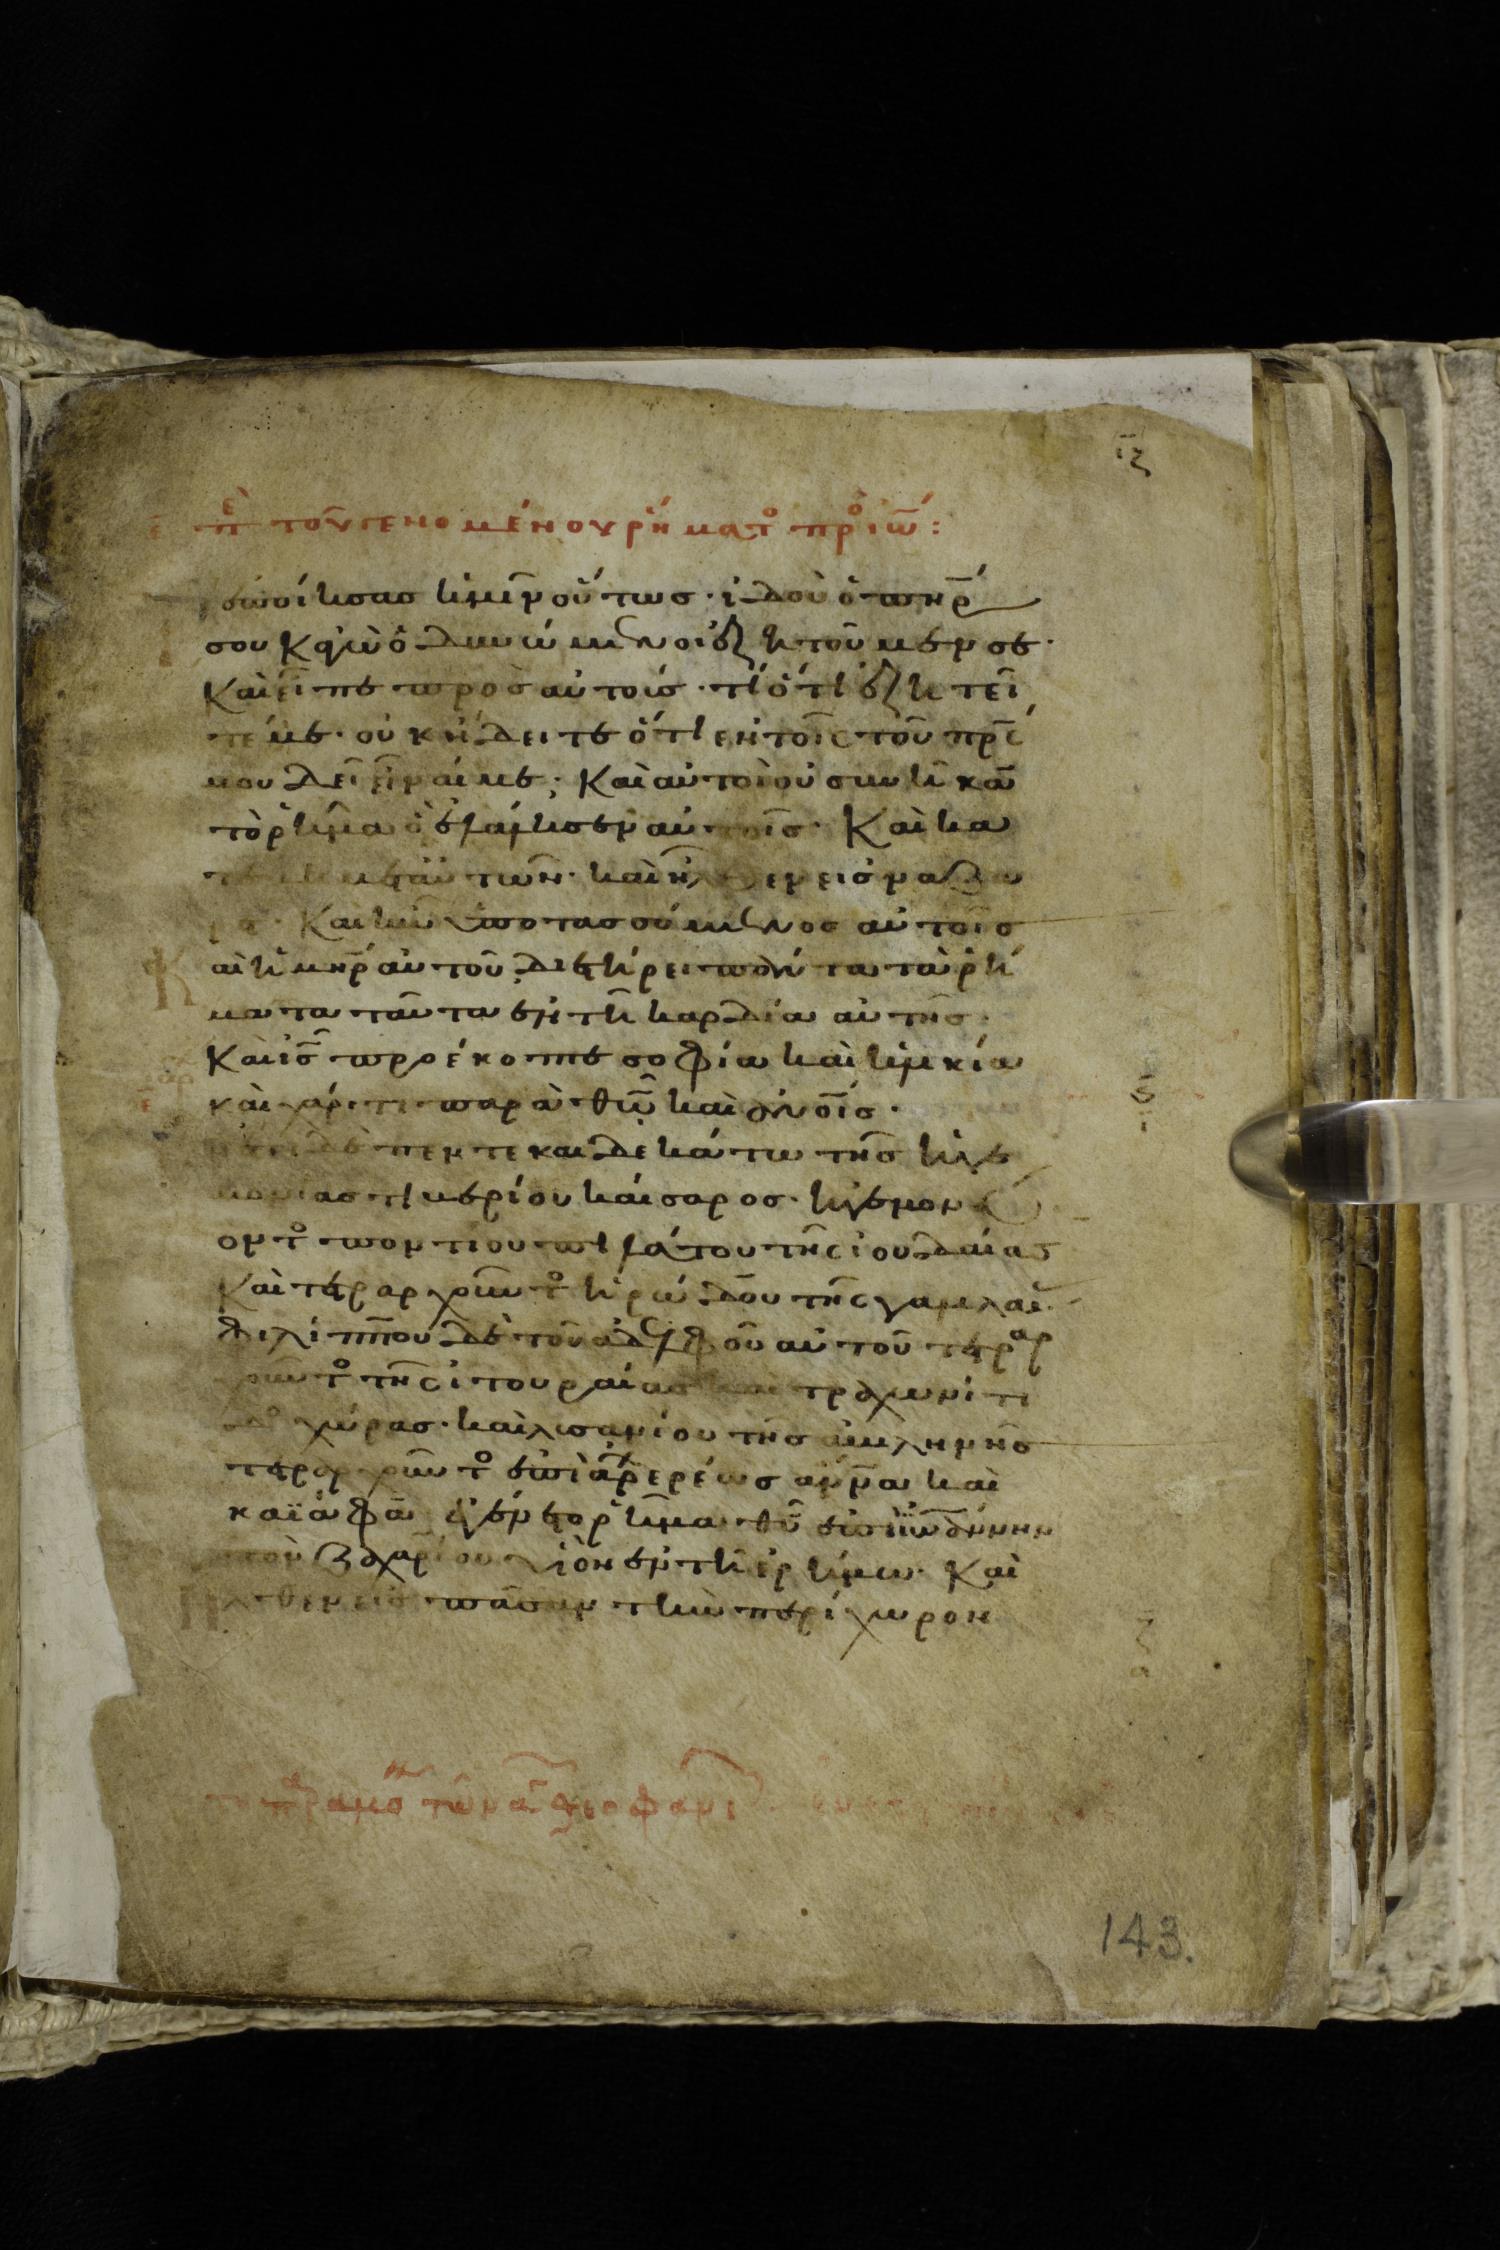 ιζ
ε πε τοῦ γενομένου ρήματο προ ιω:
εποίησας ἡμῖν οὕτως· ἰδοὺ ὁ πηρ
σου κἀγὼ ὀδυνώμενοι ἐζητοῦμέν σε·
Καὶ εἶπε πρὸς αὐτούς· τί ὅτι ἐζητεῖ
τέ με· οὐκ ήδειτε ὅτι ἐν τοῖς τοῦ πρς
μου δεῖ εἶναί με· Καὶ αὐτοὶ οὐ συνῆκαν
τὸ ρῆμα ὃ ἐλάλησεν αὐτοῖς· Καὶ κα
τέβη μετ αὐτῶν· καὶ ἦλθεν εἰς ναζα
ρέτ· Καὶ ἦν ὑποτασσόμενος αὐτοῖς
αὶ ἡ μηρ αὐτοῦ διετήρει πάντα τὰ ρή
ματα ταῦτα ἐν τῆ καρδία αὐτῆς·
Καὶ ις προέκοπτε σοφία καὶ ἡλικία
καὶ χάριτι παρὰ θω καὶ ανοις·
ν έτει δὲ πεντεκαιδεκάτω τῆς ἡγε
μονίας τιβερίου καίσαρος· ἡγεμονεύ
οντο ποντίου πιλάτου τῆς ἰουδαίας
Καὶ τετραρχοῦντο ἡρώδου τῆς γαλιλαί
φιλίππου δὲ τοῦ ἀδελφοῦ αὐτοῦ τετραρ
χοῦντο τῆς ἰτουραίας καὶ τραχωνίτι
δο χώρας· καὶ λυσανίου τῆς ἀβιληνῆς
τετραρχοῦντο ἐπὶ ἀρχιερέως ἄννα καὶ
καϊάφα ἐγένετο ρῆμα θυ ἐπὶ ἰωάννην
τὸν ζαχαρίου υἱὸν ἐν τῆ ἐρήμω· Καὶ
λθεν εἰς πᾶσαν τὴν περίχωρον
143.